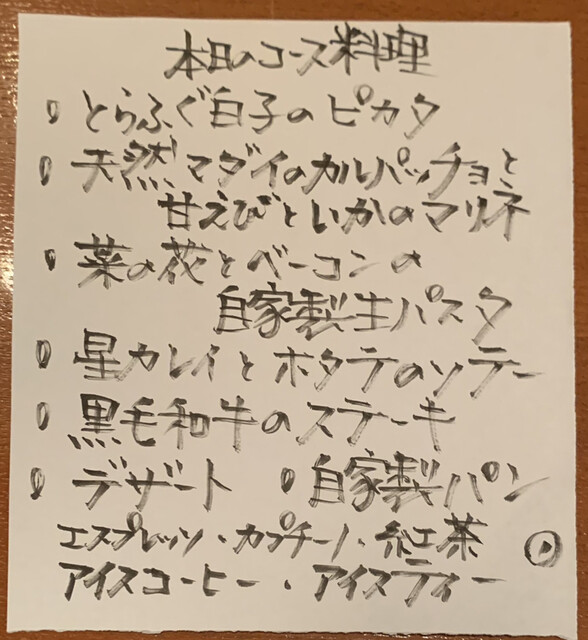 本日のコース料理
・とらふぐ白子のピカタ
・天然マダイのカルパッチョと
甘えびといかのマリネ
・菜の花とベーコンの
自家製生パスタ
・星カレイとホタテのソテー
・黒毛和牛のステーキ
・デザート ・自家製パン
エスプレッソ・カプチーノ・紅茶
アイスコーヒー・アイスティー